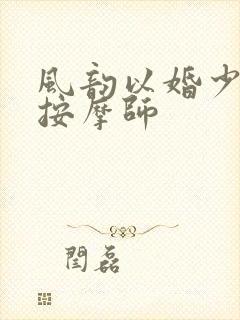 風韵以婚少
按摩師
閆磊